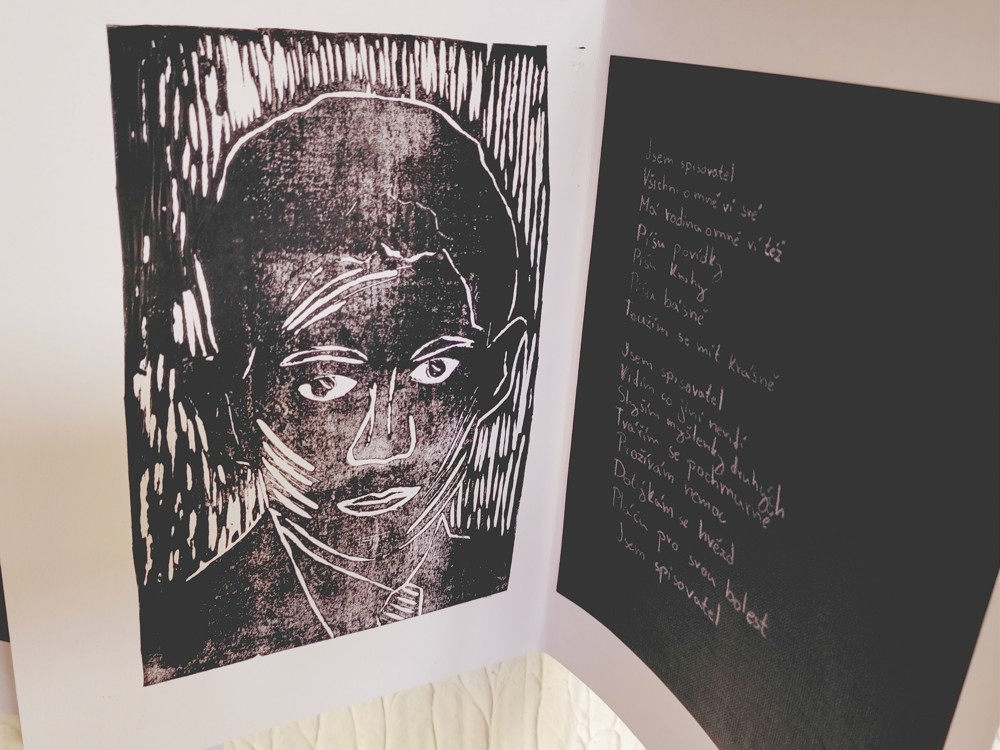 Jsem spisovatel
Všichni o mně ví své
Má rodina o mně ví též
Píšu povídky
Píšu knihy
Píšu básně
Toužím se mít krásně
Jsem spisovatel
Vidím co jiní nevidí
Slyším myšlenky druhých
Tvářím se pochmurně
Prožívám nemoc
Dotýkám se hvězd
Pláču pro svou bolest
Jsem spisovatel